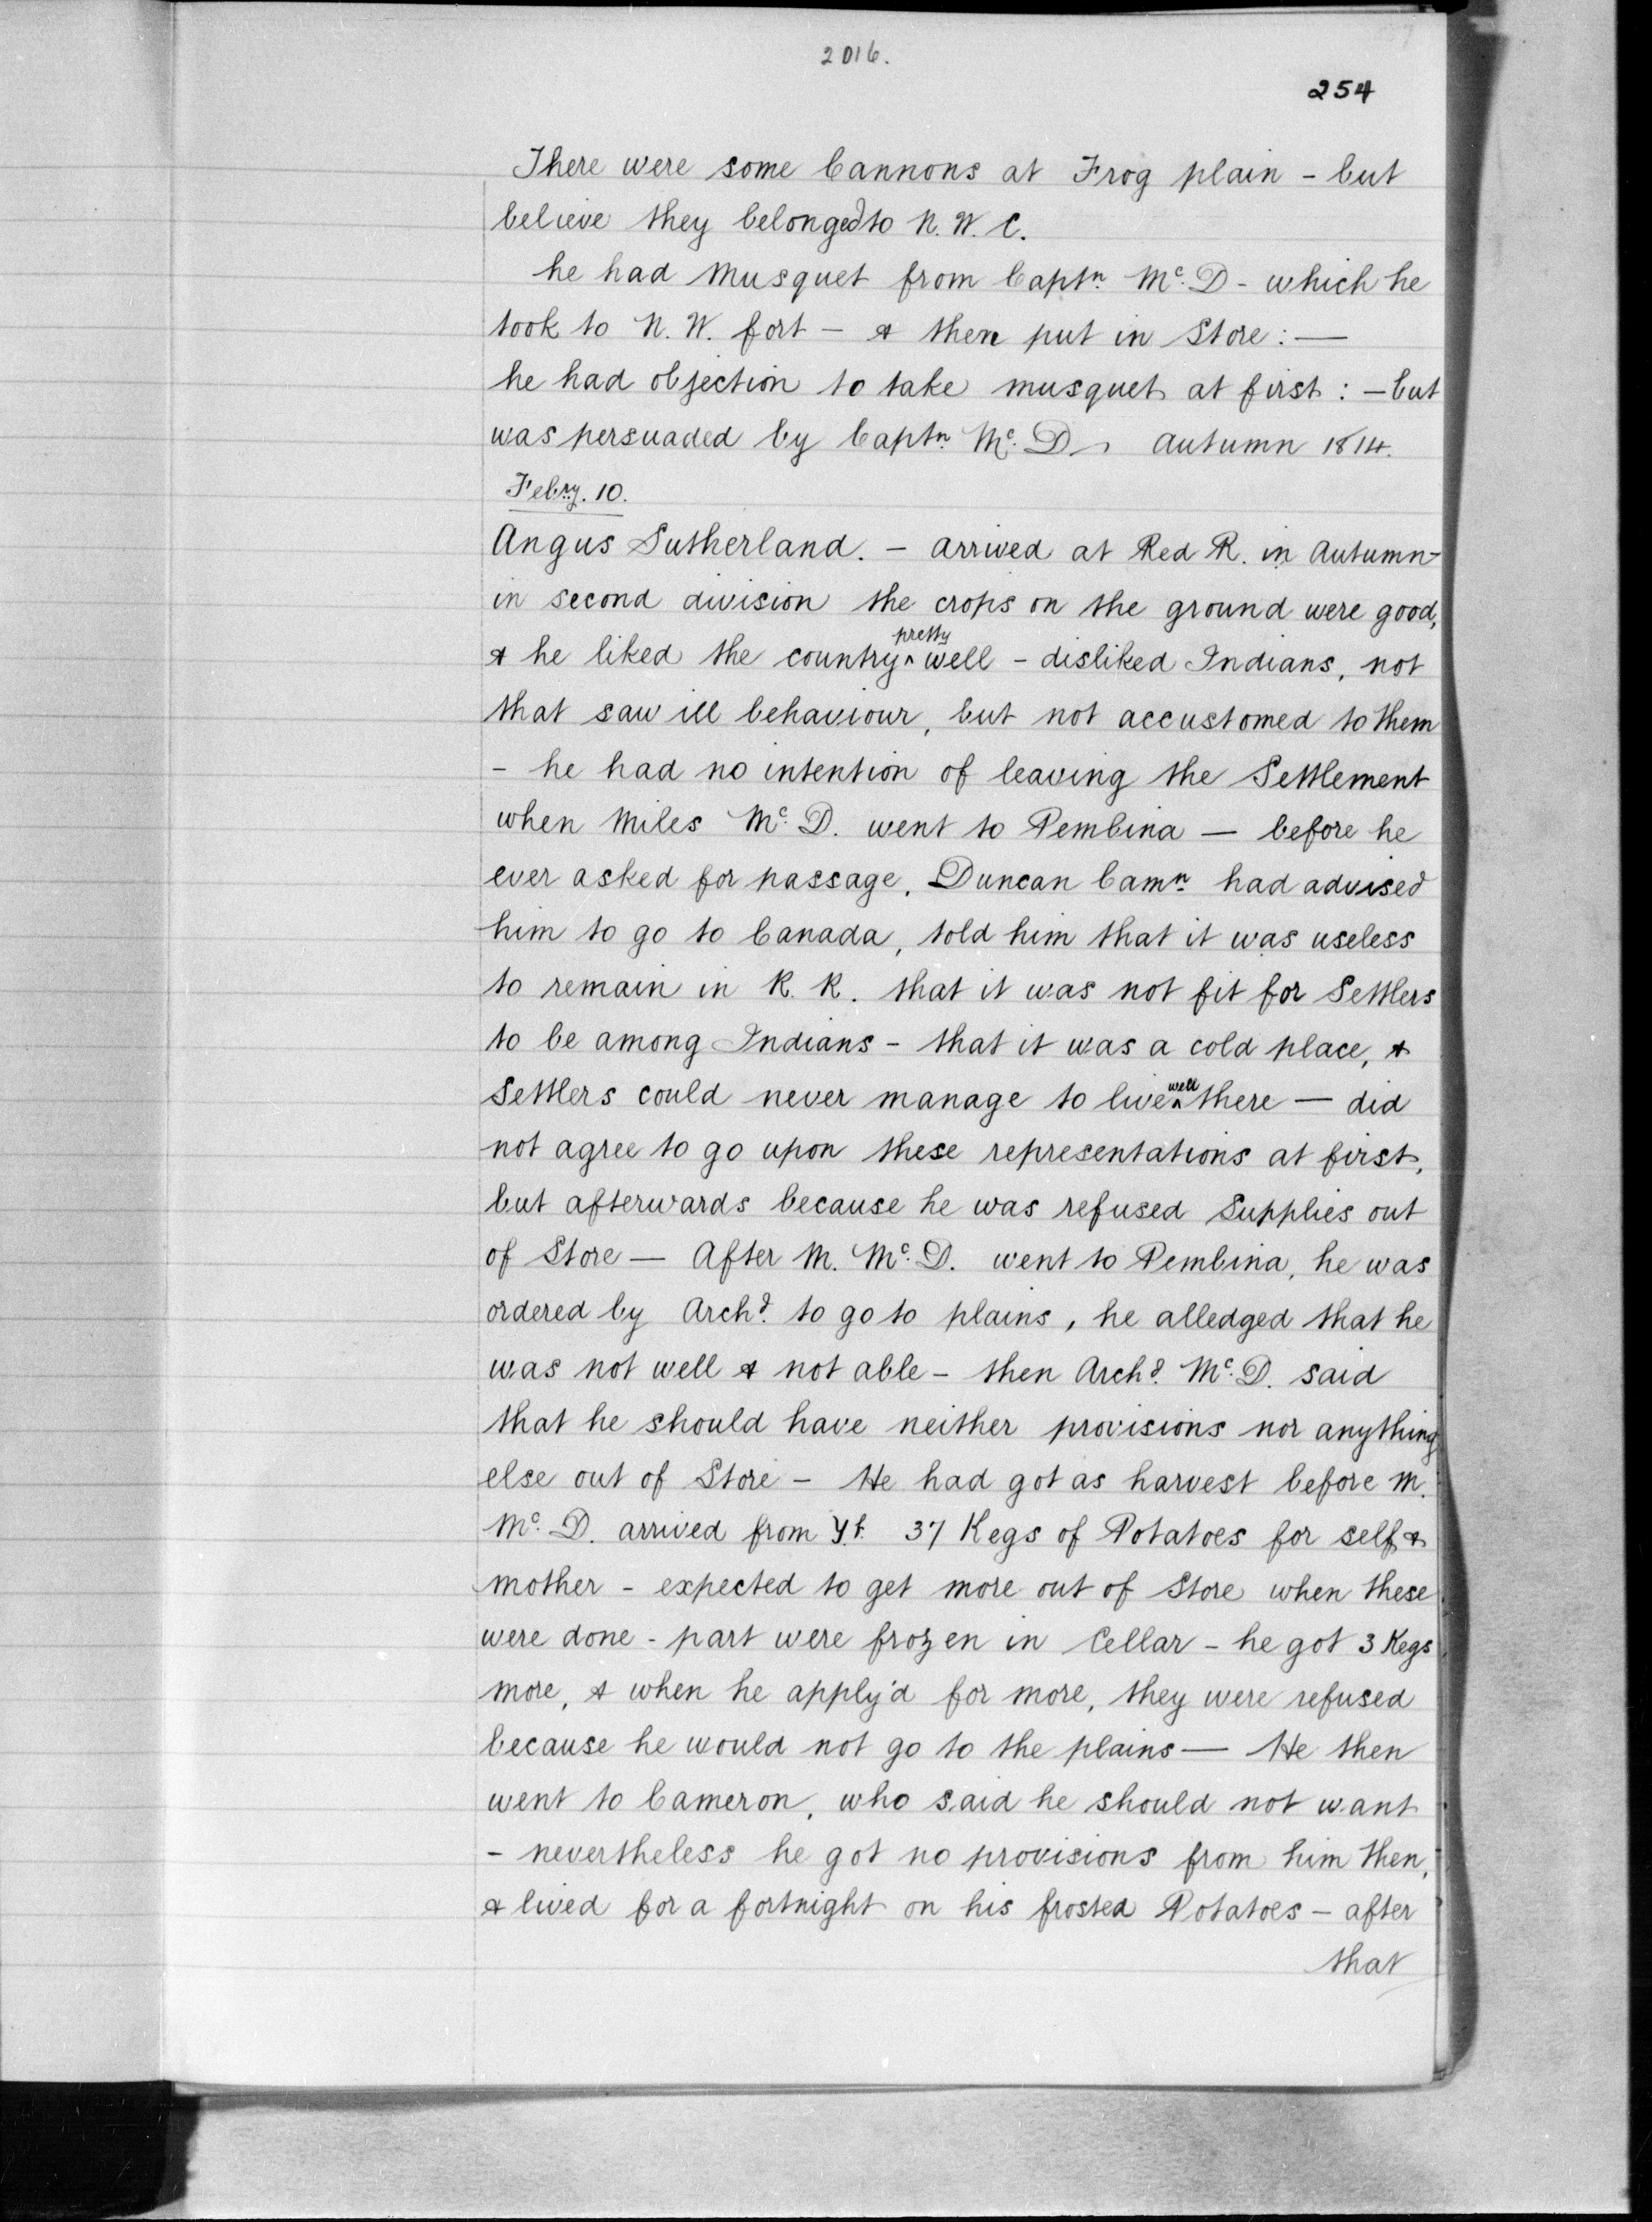 2016.
254
There were some Cannons at Frog plain - but
believe they belonged to N. W. C.
he had Musquet from Captn. Mc. D - which he
took to N. W. fort - & then put in Store : -
he had objection to take musquet at first : - but
was persuaded by Captn. Mc. D - Autumn 1814.
Febry. 10.
Angus Sutherland. - arrived at Red R. in Autumn -
in second division the crops on the ground were good,
& he liked the country ^ pretty well - disliked Indians, not
that saw ill behaviour, but not accustomed to them
- he had no intention of leaving the Settlement
when Miles Mc. D. went to Pembina - before he
ever asked for passage, Duncan Camn. had advised
him to go to Canada, told him that it was useless
to remain in R. R. that it was not fit for Settlers
to be among Indians - that it was a cold place, &
Settlers could never manage to live ^ well there - did
not agree to go upon these representations at first,
but afterwards because he was refused Supplies out
of Store - After M. Mc. D. went to Pembina, he was
ordered by Archd. to go to plains, he alledged that he
was not well & not able - then Archd. Mc. D. said
that he should have neither provisions nor anything
else out of Store - He had got as harvest before M.
Mc. D. arrived from Y.f. 37 Kegs of Potatoes for self &
mother - expected to get more out of Store when these
were done - part were frozen in Cellar - he got 3 Kegs
more, & when he apply'd for more, they were refused
because he would not go to the plains - He then
went to Cameron, who said he should not want
- nevertheless he got no provisions from him then,
& lived for a fortnight on his frosted Potatoes - after
that